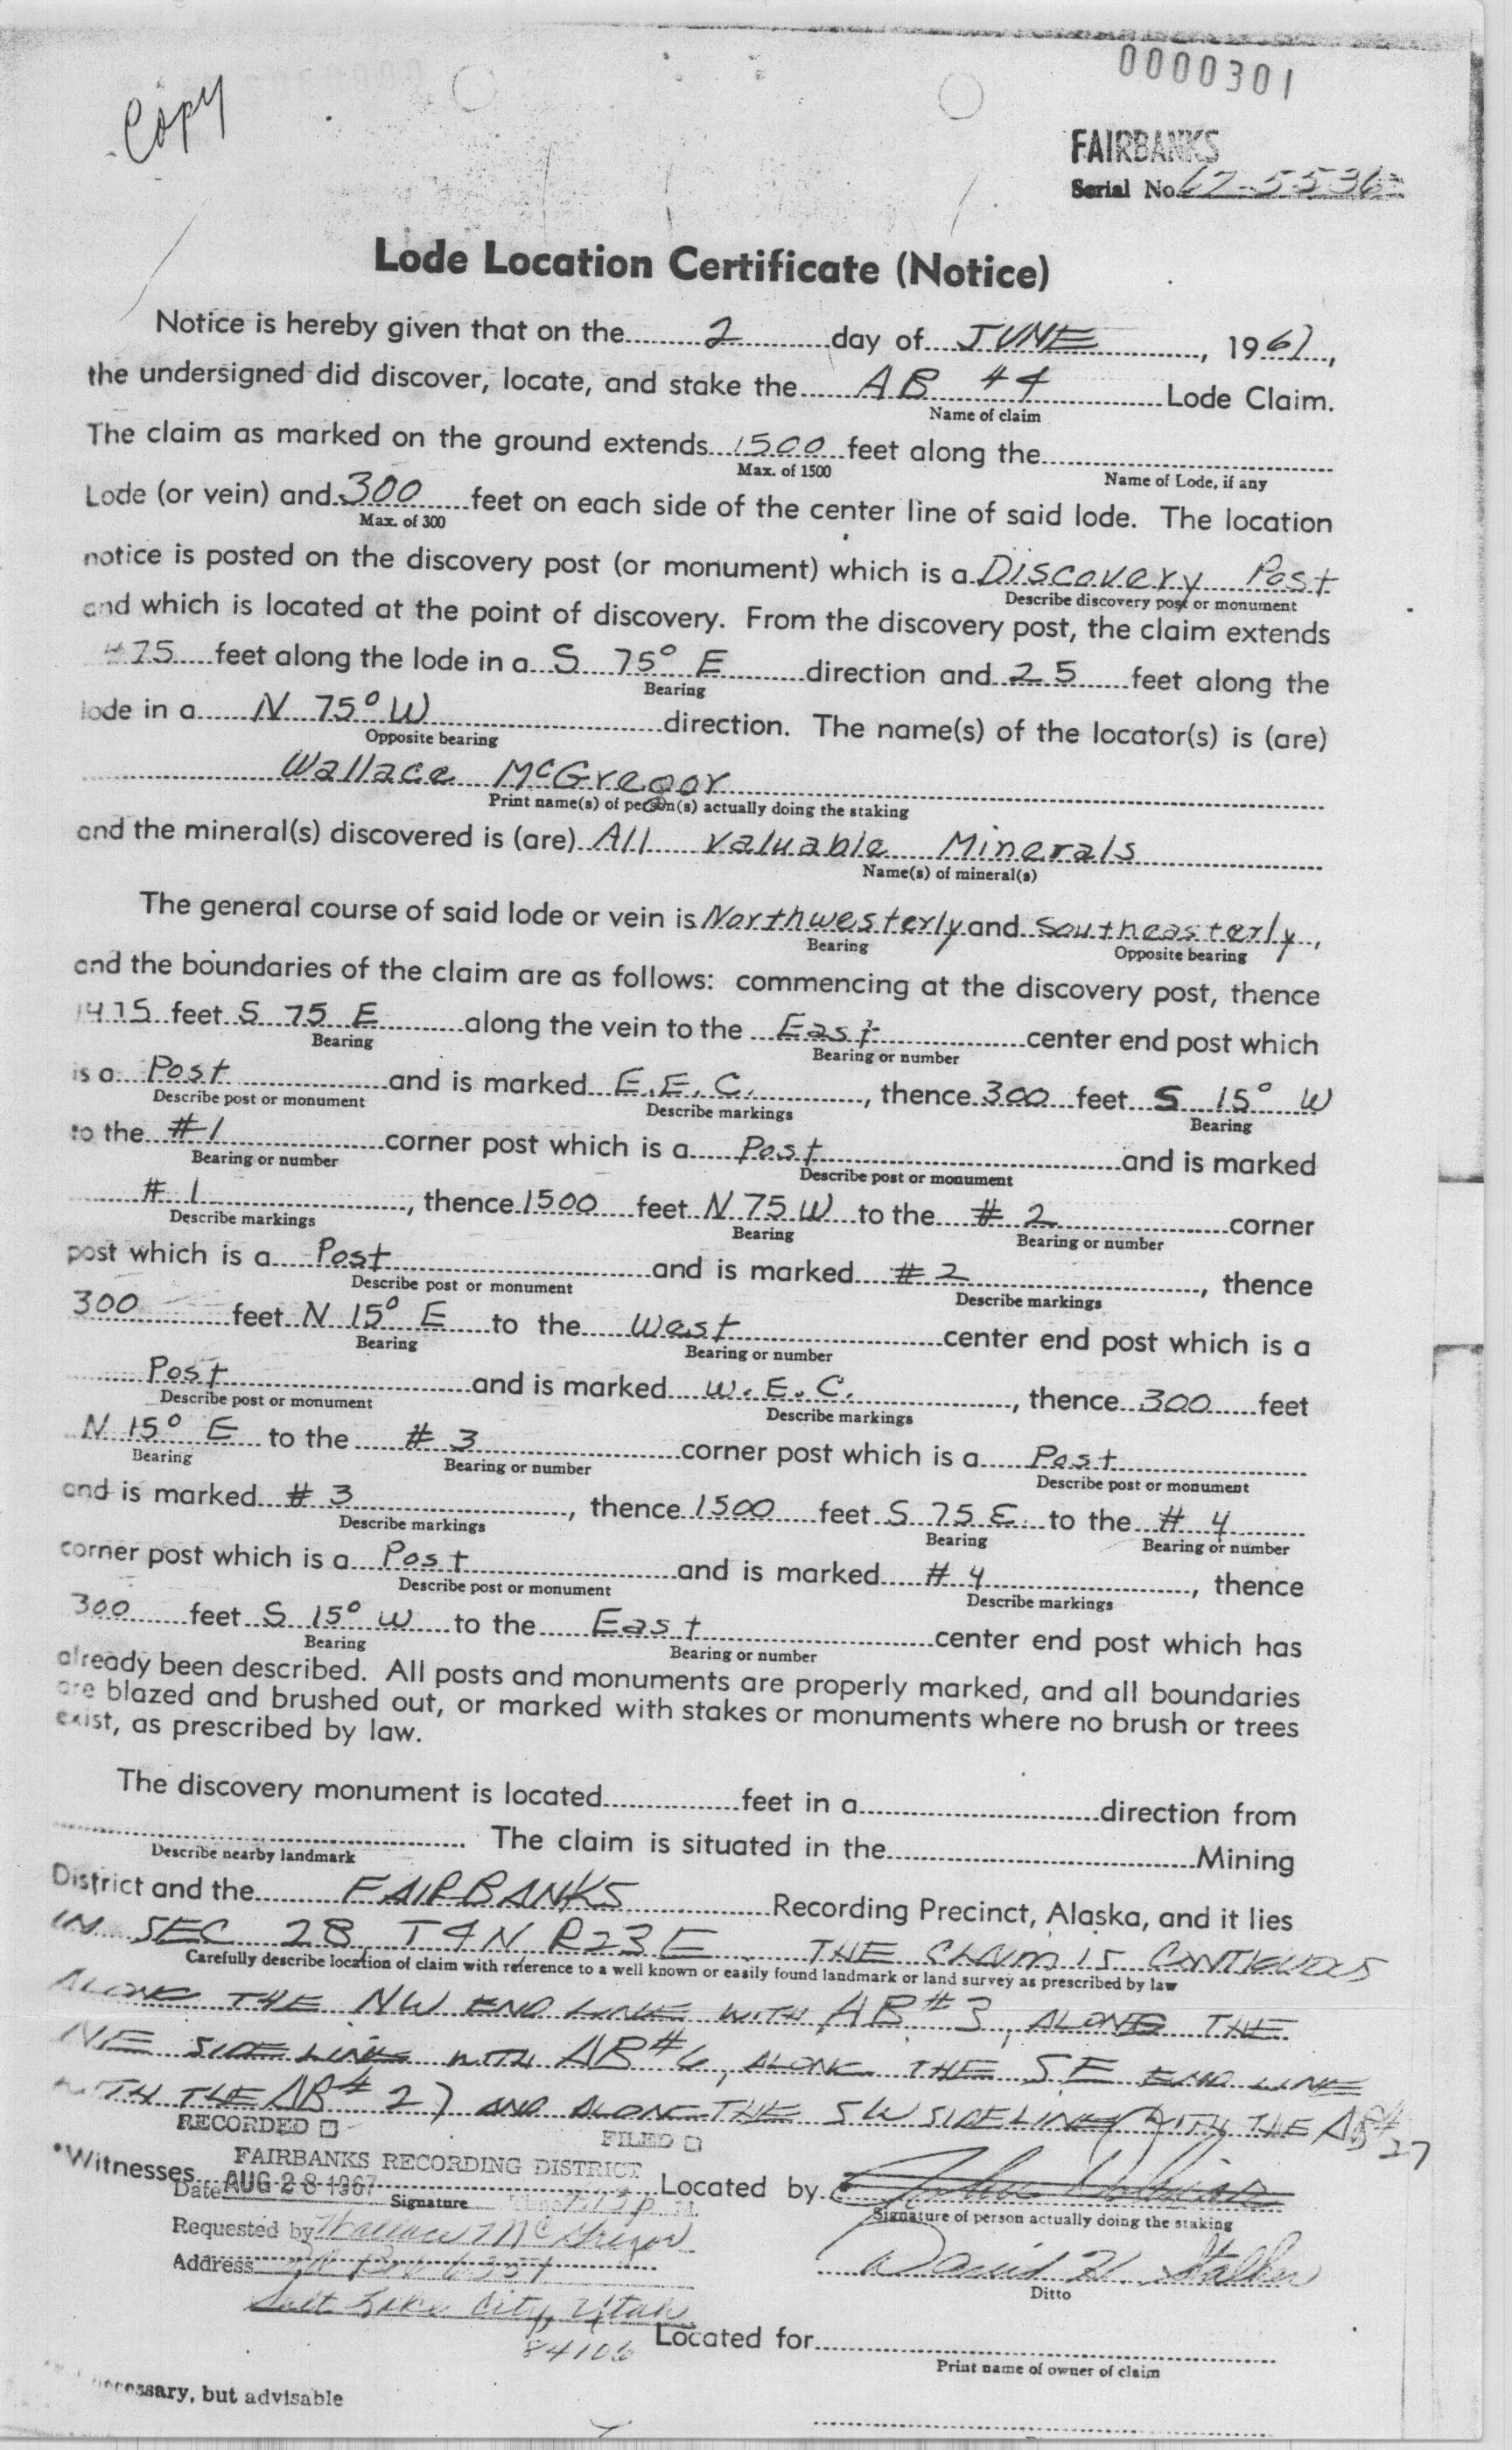 0000301
Copy
FAIRBANKS
Serial No. 67-5536
Lode Location Certificate (Notice)
Notice is hereby given that on the 2 day of JUNE, 1967,
the undersigned did discover, locate, and stake the AB #4 Lode Claim.
Name of claim
The claim as marked on the ground extends 1500 feet along the
Max. of 1500 Name of Lode, if any
Lode (or vein) and 300 feet on each side of the center line of said lode. The location
Max. of 300
notice is posted on the discovery post (or monument) which is a Discovery Post
Describe discovery post or monument
and which is located at the point of discovery. From the discovery post, the claim extends
475 feet along the lode in a S 75° E direction and 25 feet along the
Bearing
lode in a N 75° W direction. The name(s) of the locator(s) is (are)
Opposite bearing
Wallace McGregor
Print name(s) of person(s) actually doing the staking
and the mineral(s) discovered is (are) All Valuable Minerals
Name(s) of mineral(s)
The general course of said lode or vein is Northwesterly and Southeasterly,
Bearing Opposite bearing
and the boundaries of the claim are as follows: commencing at the discovery post, thence
1475 feet S 75 E along the vein to the East center end post which
Bearing Bearing or number
is a Post and is marked E.E.C., thence 300 feet S 15° W
Describe post or monument Describe markings Bearing
to the #1 corner post which is a Post and is marked
Bearing or number Describe post or monument
#1, thence 1500 feet N 75 W to the #2 corner
Describe markings Bearing Bearing or number
post which is a Post and is marked #2, thence
Describe post or monument Describe markings
300 feet N 15° E to the West center end post which is a
Bearing Bearing or number
Post and is marked W.E.C., thence 300 feet
Describe post or monument Describe markings
N 15° E to the #3 corner post which is a Post
Bearing Bearing or number Describe post or monument
and is marked #3, thence 1500 feet S 75 E to the #4
Describe markings Bearing Bearing or number
corner post which is a Post and is marked #4, thence
Describe post or monument Describe markings
300 feet S 15° W to the East center end post which has
Bearing Bearing or number
already been described. All posts and monuments are properly marked, and all boundaries
are blazed and brushed out, or marked with stakes or monuments where no brush or trees
exist, as prescribed by law.
The discovery monument is located feet in a direction from
. The claim is situated in the Mining
Describe nearby landmark
District and the FAIRBANKS Recording Precinct, Alaska, and it lies
IN SEC 28, T4N R23E. THE CLAIM IS CONTIGUOUS
Carefully describe location of claim with reference to a well known or easily found landmark or land survey as prescribed by law
ALONG THE NW END LINE WITH AB#3, ALONG THE
NE SIDE LINE WITH AB#6, ALONG THE SE END LINE
WITH THE AB# 27 AND ALONG THE SW SIDELINE WITH THE AB#
27
RECORDED FILED
FAIRBANKS RECORDING DISTRICT
*Witnesses Located by
Date AUG 28 1967
Signature Signature of person actually doing the staking
Requested by Wallace McGregor
David H. Stalker
Address
Ditto
Salt Lake City, Utah
84106
Located for
Print name of owner of claim
necessary, but advisable